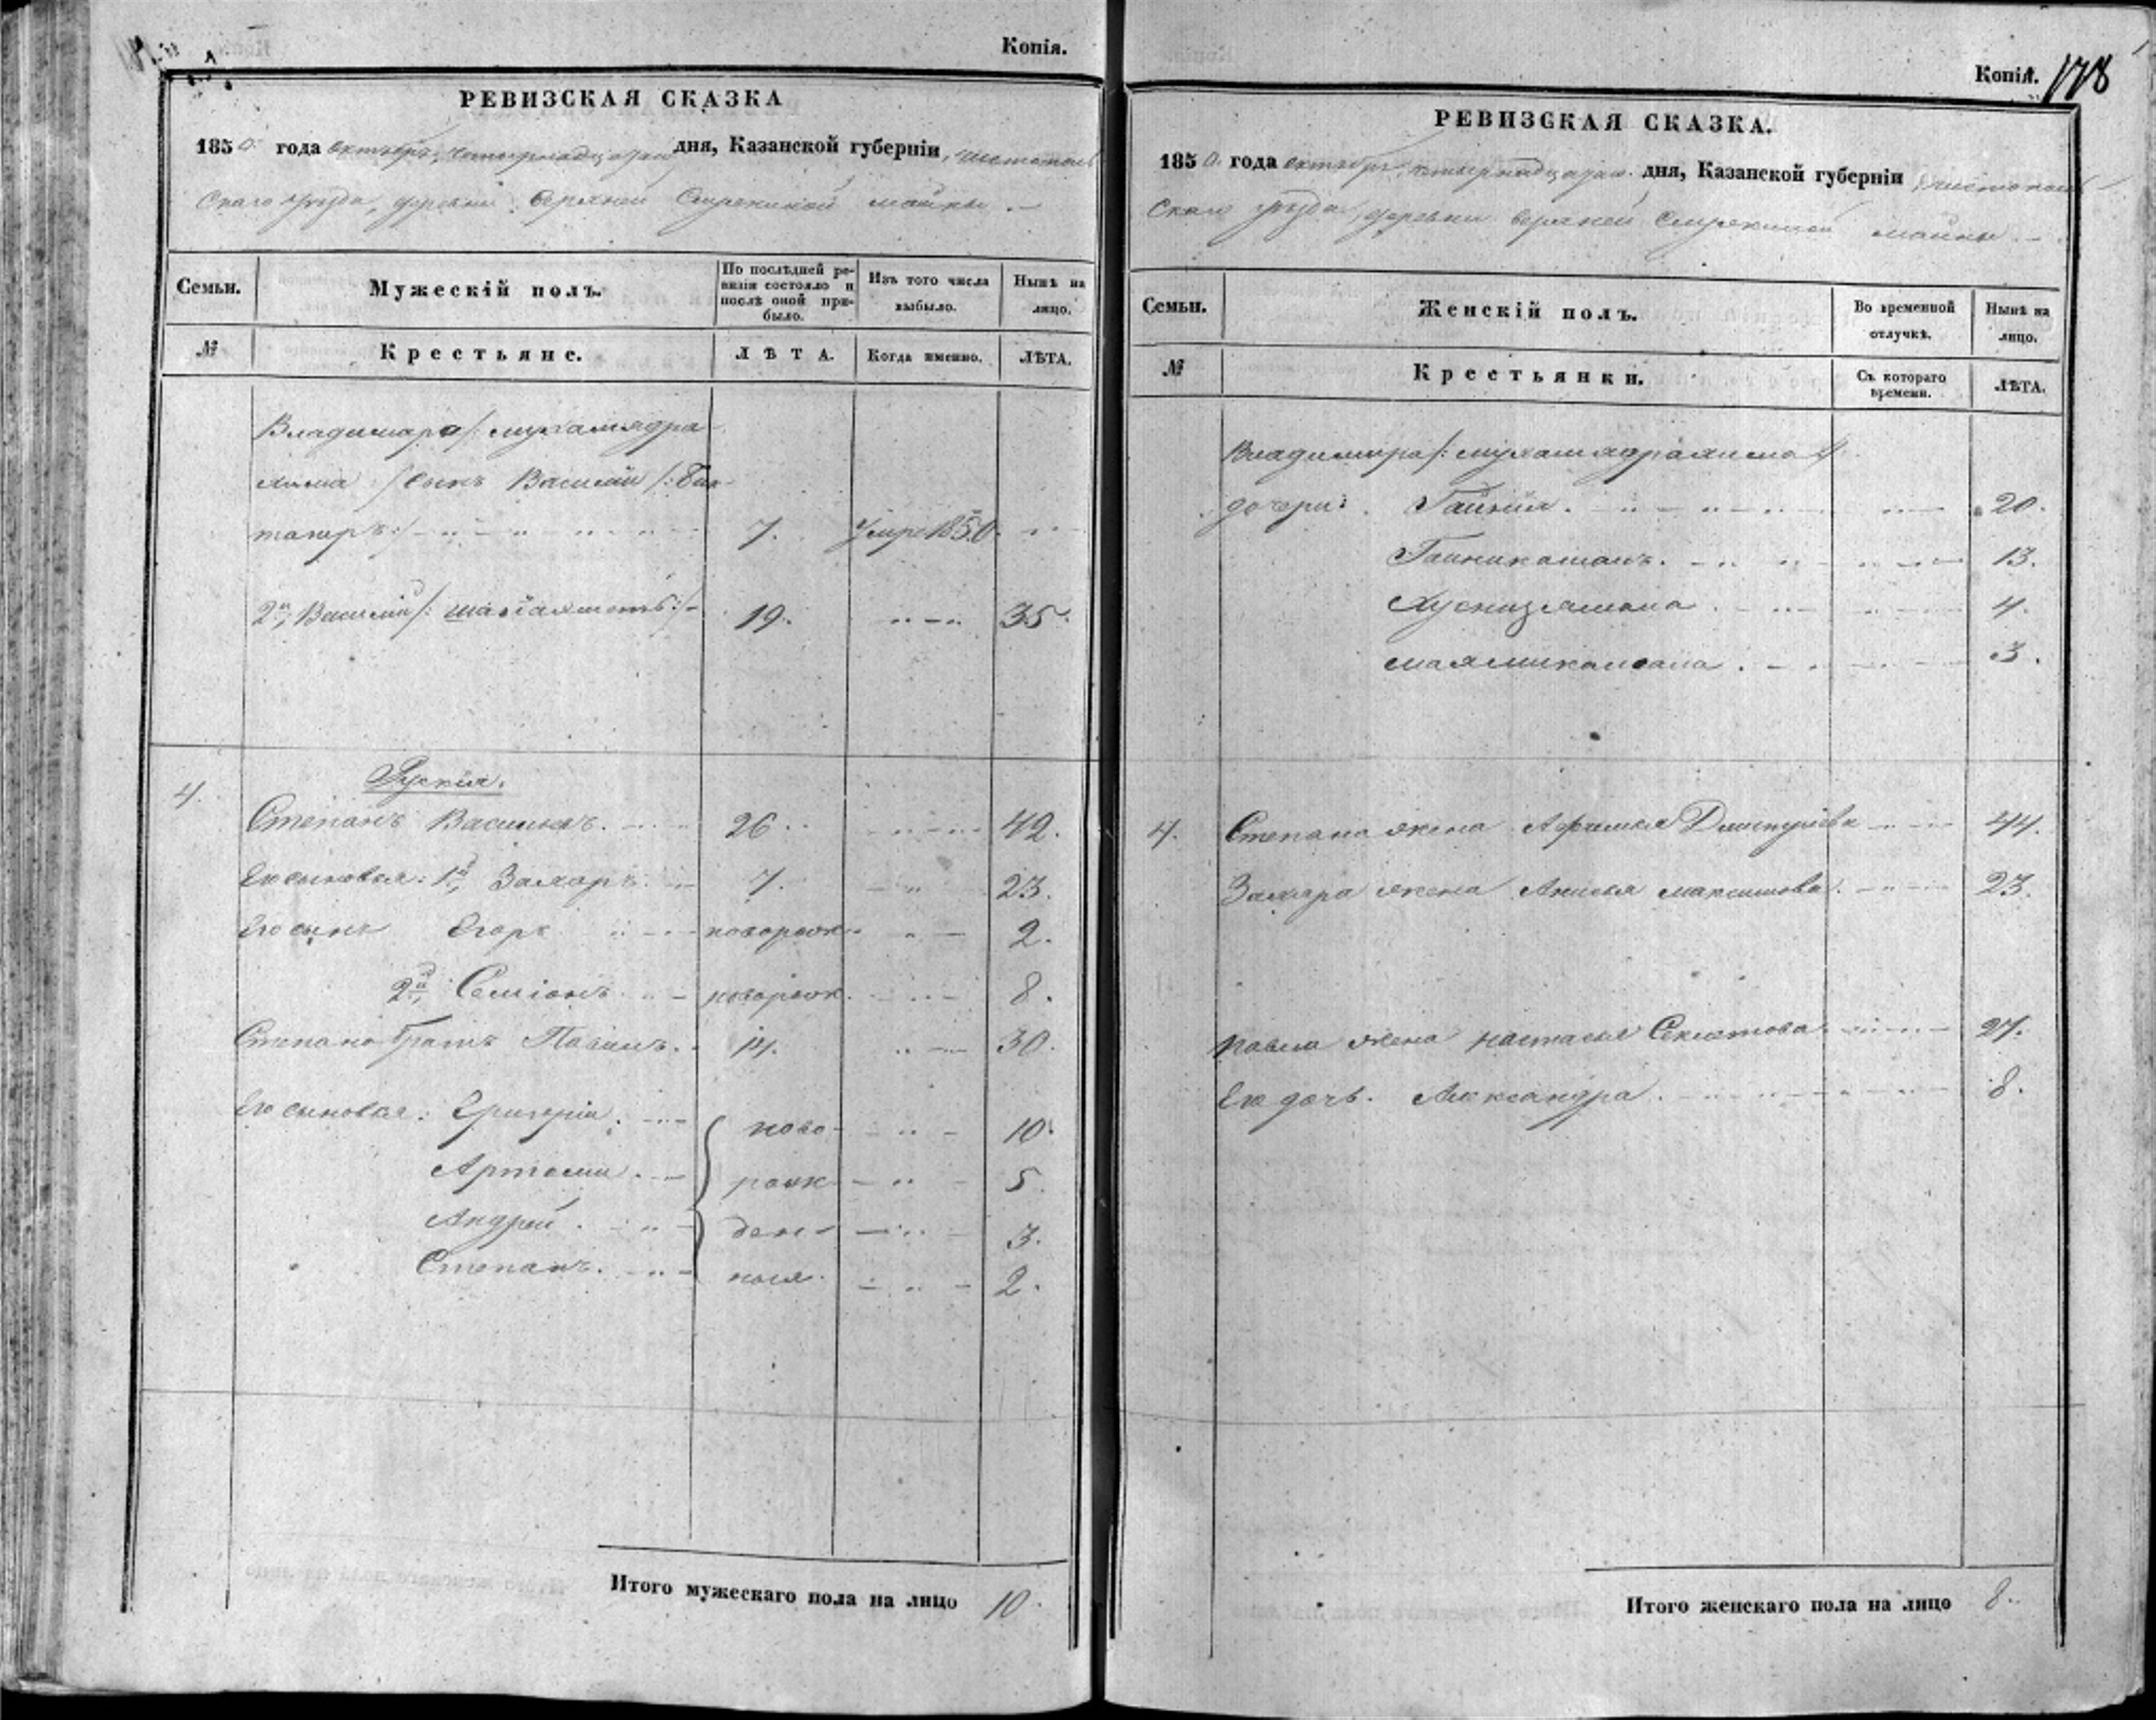 Копія.
РЕВИЗСКАЯ СКАЗКА
1850. года октября, четырнадцатаго дня, Казанской губерніи, чистополь
скаго уѣзда, деревни верхней майны. —
Семьи.
Мужескій полъ.
По послѣдней ре-
визіи состояло и
послѣ оной при-
было.
Изъ того числа
выбыло.
Нынѣ на
лицо.
№
Крестьяне.
ЛѢТА.
Когда именно.
ЛѢТА.
Владимира /: мухамядра
хима / сынъ Василий /: Бик
тагиръ :/ 7. Умре 1850.
2й Василий /: 19. 35.
4. Руския.
Степанъ Васильевъ. 26. 42.
Его сыновья: 1й Захаръ. 7. 23.
Его сынъ Егоръ новорожд. 2.
2й Семіонъ новорожд. 8.
Степана братъ Павилъ. 14. 30.
Его сыновья: Григорій. ново- 10.
Артемий. рожд 5
Андрей. ден- 3.
Степанъ. ныя. 2.
Итого мужескаго пола на лицо 10.
Копія. 178
РЕВИЗСКАЯ СКАЗКА.
1850. года октября, четырнадцатаго дня, Казанской губерніи, чистополь
скаго уѣзда, деревни верхней майны. —
Семьи.
Женскій полъ.
Во временной
отлучкѣ.
Нынѣ на
лицо.
№
Крестьянки.
Съ котораго
времени.
ЛѢТА.
Владимира /: мухамядрахима :/
дочери: 20.
Гайникамалъ. 13.
Хуснизямала. 4.
3.
4. Степана жена Афимья Дмитріева 44.
Захара жена Анисья максимова. 23.
Павла жена настасья 27.
Ея дочь. Александра. 8.
Итого женскаго пола на лицо 8.